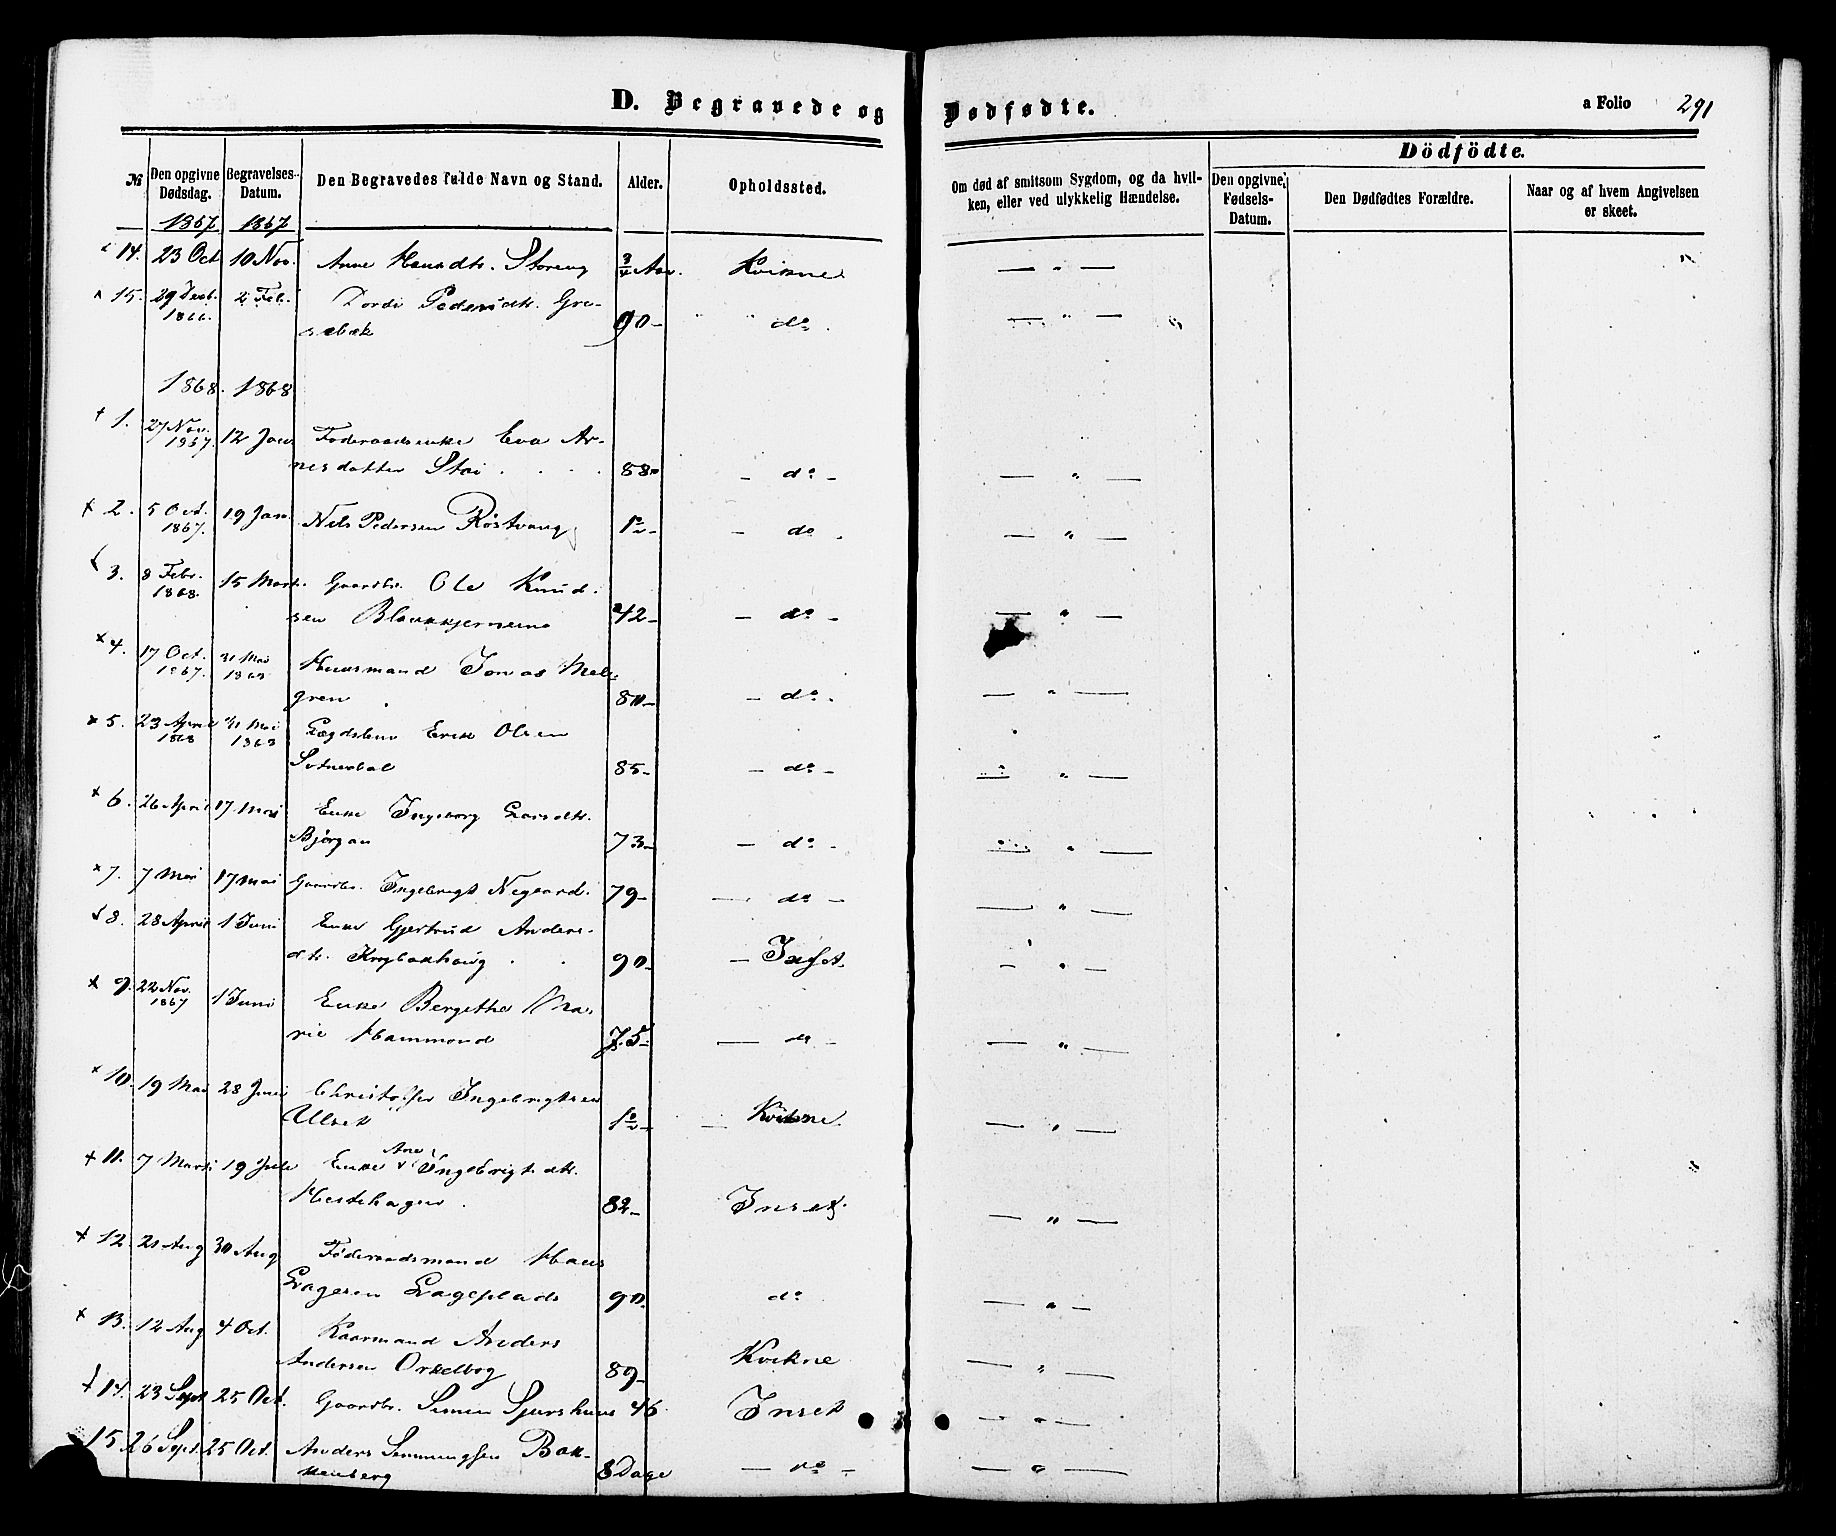 D. Begravede og Dødfødte.
a Folio 291
№
Den opgivne Dødsdag.
Begravelses-Datum.
Den Begravedes fulde Navn og Stand.
Alder.
Opholdssted.
Om død af smitsom Sygdom, og da hvil-
ken, eller ved ulykkelig Hændelse.
Dödfödte.
Den opgivne Fødsels-Datum.
Den Dødfødtes Forældre.
Naar og af hvem Angivelsen
er skeet.
1867 1867
14. 23 Oct 10 Nov. Anne Hansdtr. Storeng 3/4 Aar. Kvikne — " —
15. 29 Decb. 2 Feb. Dordi Pedersdtr. Gre-
1866. sebæk 90 - " " do. — " —
1868. 1868
1. 27 Nov. 12 Jan Føderaadsenke Eva Ar-
1867. nesdatter Stai . . . . 88 - - do - — " —
2. 5 Oct. 19 Jan. Nils Pedersen Röstvang 1/2 - - do . — " —
1867.
3. 8 Febr. 15 Mart. Gaardbr. Ole Knud-
1868. sen Blankkjernmo 42 - - do - — " —
4. 17 Oct. 31 Mai Huusmand Jonas Mel-
1867. 1868 gren 80 - - do. — " —
5. 23 April 31 Mai Lægdslem Erik Olsen
1868 1868 85 - - do - — " —
6. 26 April 17 Mai Enke Ingeborg Larsdtr.
Bjørgan 73 - - do - — " —
7. 7 Mai 17 Mai Gaardbr. Ingebrigt Negaard. 79 - — do - — " —
8. 28 April 1 Juni Enke Gjertrud Anders-
dtr. 90 - - Inset. — " —
9. 22 Nov. 1 Juni Enke Bergethe Ma-
1867 rie Hammond 75 - — do - — " —
10. 19 Mai 28 Juni Christoffer Ingebrigtsen
Ulset 1/2 - — Kvikne. — " —
11. 7 Marts 19 Jule Enke Ane Ingebrigtsdtr.
Hestehagen . 82 - Inset. — " —
12. 21 Aug 30 Aug Føderaadsmand Hans
Lagesen Lageplads 90. do — " —
13. 12 Aug 4 Oct. Kaarmand Anders
Andersen Orkelbog 89 - Kvikne — " —
14. 23 Sept 25 Oct. Gaardbr. Simen Sjurshuus 46 Inset — " —
15 26 Sept. 25 Oct. Anders Simmingsen Bak-
kenberg 8 Dage — do - — " —